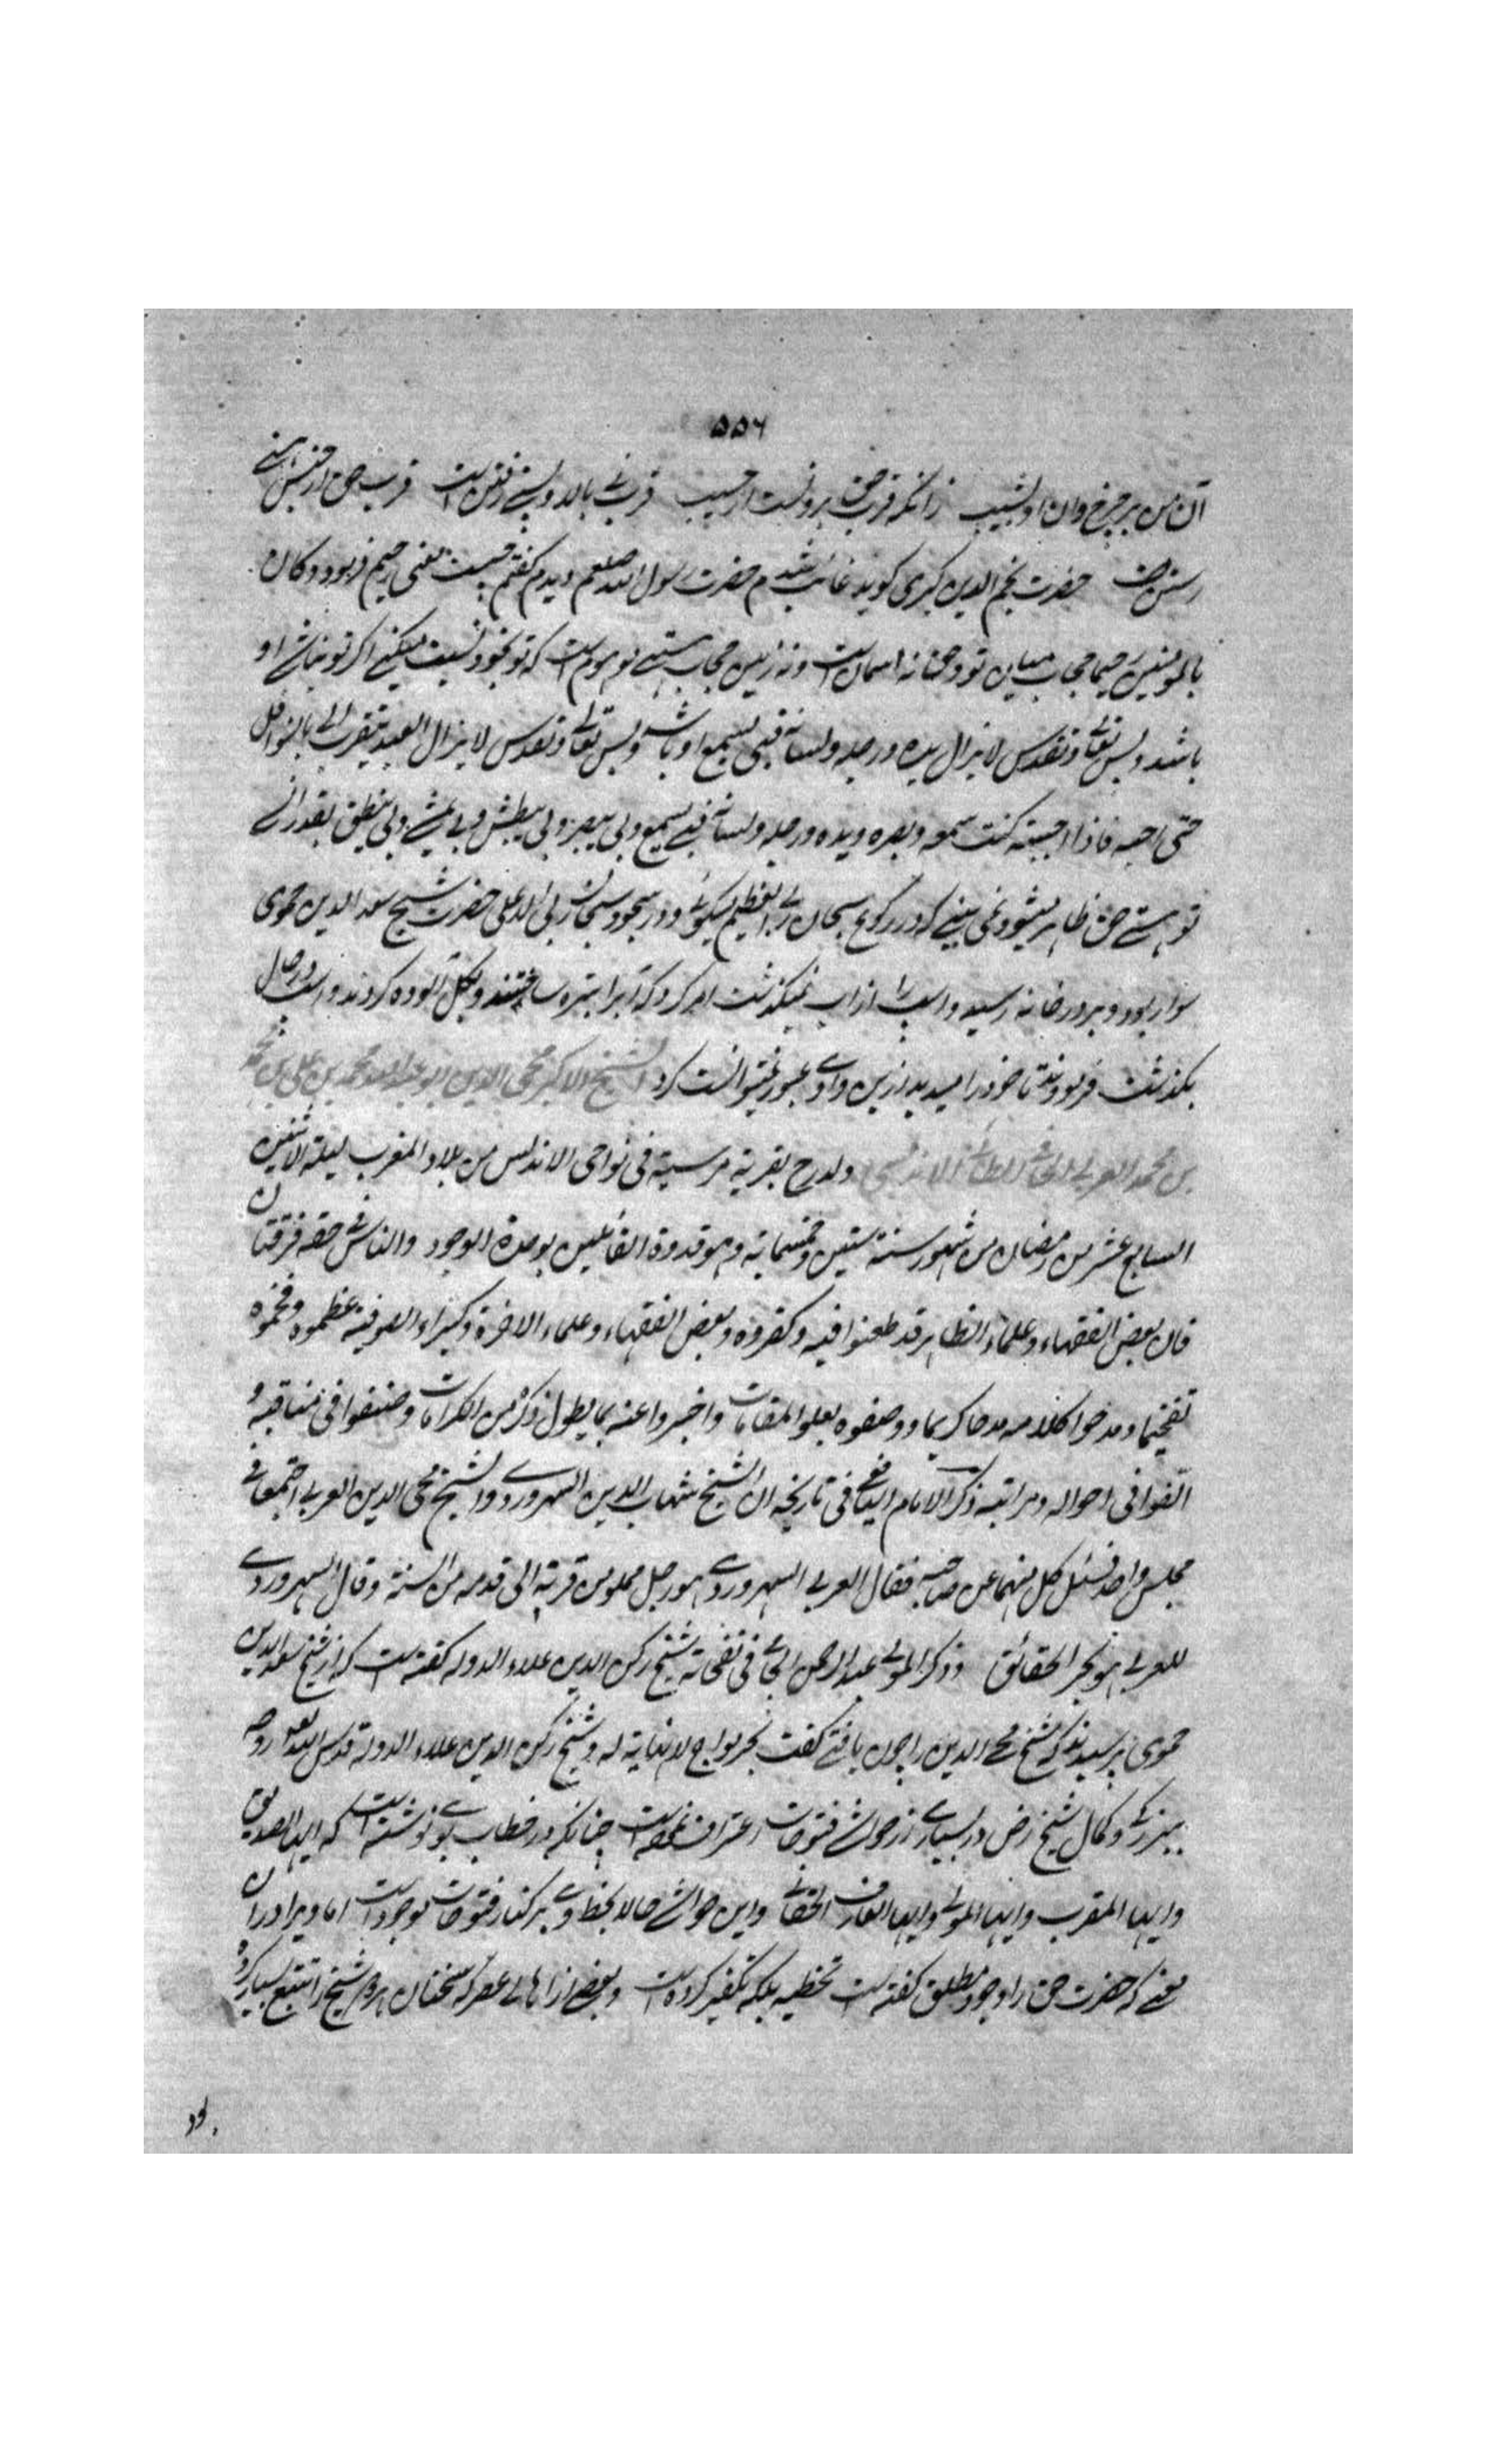 ٥٥٦
آن من بر چرخ وان او بشیب زانکه قرب حق برونست از حسیب قرب نی بالا و پستی رفتن است قرب حق از حبس هستی
رستن است حضرت نجم الدین کبری کوید غائب شدم حضرت رسول الله صلعم دیدم کفتم چیست معنی رحیم فرمود وکان
بالمؤمنین رحیما حجاب میان تو وحق نه اسمانست ونه زمین حجاب هستی موهوم است که تو بخود نسبت میکنی اکر تو نباشی او
باشد ولیس تعالی وتقدس لا یزال یده ورجله ولسانه فبی یسمع او باشد ولیس تعالی وتقدس لا یزال العبد یتقرب الی بالنوافل
حتی احبه فاذا احببته کنت سمعه وبصره ویده ورجله ولسانه فبی یسمع وبی یبصر وبی یبطش وبی یمشی وبی ینطق بقدر انکه
تو هستی حق ظاهر میشود نمی بینی که در رکوع سبحان ربی العظیم میکوئی ودر سجود سبحان ربی الاعلی حضرت شیخ سعد الدین حموی
سوار بود وبرودخانه رسید واسب از آب نمیکذشت امر کرد که آبرا تیره ساختند وبکل آلوده کردند واسب در حال
بکذشت فرمودند تا خود را میدید ازین وادی عبور نمیتوانست کرد الشیخ الاکبر محی الدین ابو عبد الله محمد بن علی بن محمد
بن محمد العربی الحاتمی الطائی الاندلسی ولد رح بقریة مرسیة فی نواحی الاندلس من بلاد المغرب لیلة الاثنین
السابع عشر من رمضان من شهور سنة ستین وخمسمایة وهو قدوة القائلین بوحدة الوجود والناس فی حقه فرقتان
فان بعض الفقهاء وعلماء الظاهر قد طعنوا فیه وکفروه وبعض الفقهاء وعلماء الاخرة وکبراء الصوفیة عظموه وفخموه
تفخیما ومدحوا کلامه مدحا کریما ووصفوه بعلو المقامات واخبروا عنه بما یطول ذکره من الکرامات وصنفوا فی مناقبه و
الّفوا فی احواله ومراتبه ذکر الامام الیافعی فی تاریخه ان الشیخ شهاب الدین السهروردی والشیخ محی الدین العربی اجتمعا فی
مجلس واحد فسئل کل منهما عن صاحبه فقال العربی السهروردی هو رجل مملو من قرنه الی قدمه من السنة وقال السهروردی
للعربی هو بحر الحقائق وذکر المولی عبد الرحمن الجامی فی نفحاته شیخ رکن الدین علاء الدوله کفته است که از شیخ سعد الدین
حموی پرسیدند که شیخ محی الدین را چون یافتی کفت بحر مواج لا نهایة له وشیخ رکن الدین علاء الدولة قدس الله تعالی روحه
ببزرکی وکمال شیخ رض در بسیاری از حواشی فتوحات اعتراف نموده است چنانکه در خطاب بوی نوشته است که ایها الصدیق
وایها المقرب وایها الولی وایها العارف الحقانی واین حواشی حالا بخط وی بر کنار فتوحات موجود است اما ویرا در ان
معنی که حضرت حق را وجود مطلق کفته است تخطیه بلکه تکفیر کرده است وبعضی از اهالی عصر که سخنان هر دو شیخ را تتبع بسیار کرده
بود